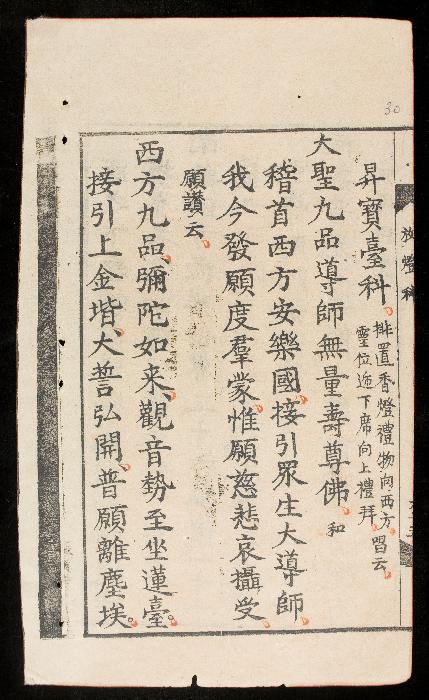 30
放燈科
昇寶臺科 排置香燈禮物向西方唱云
靈位迤下席向上禮拜
大聖九品導師無量壽尊佛 和
稽首西方安樂國接引眾生大導師
我今發願度羣蒙惟願慈悲哀攝受
願讚云
西方九品彌陀如來觀音勢至坐蓮臺
接引上金堦大誓弘開普願離塵埃